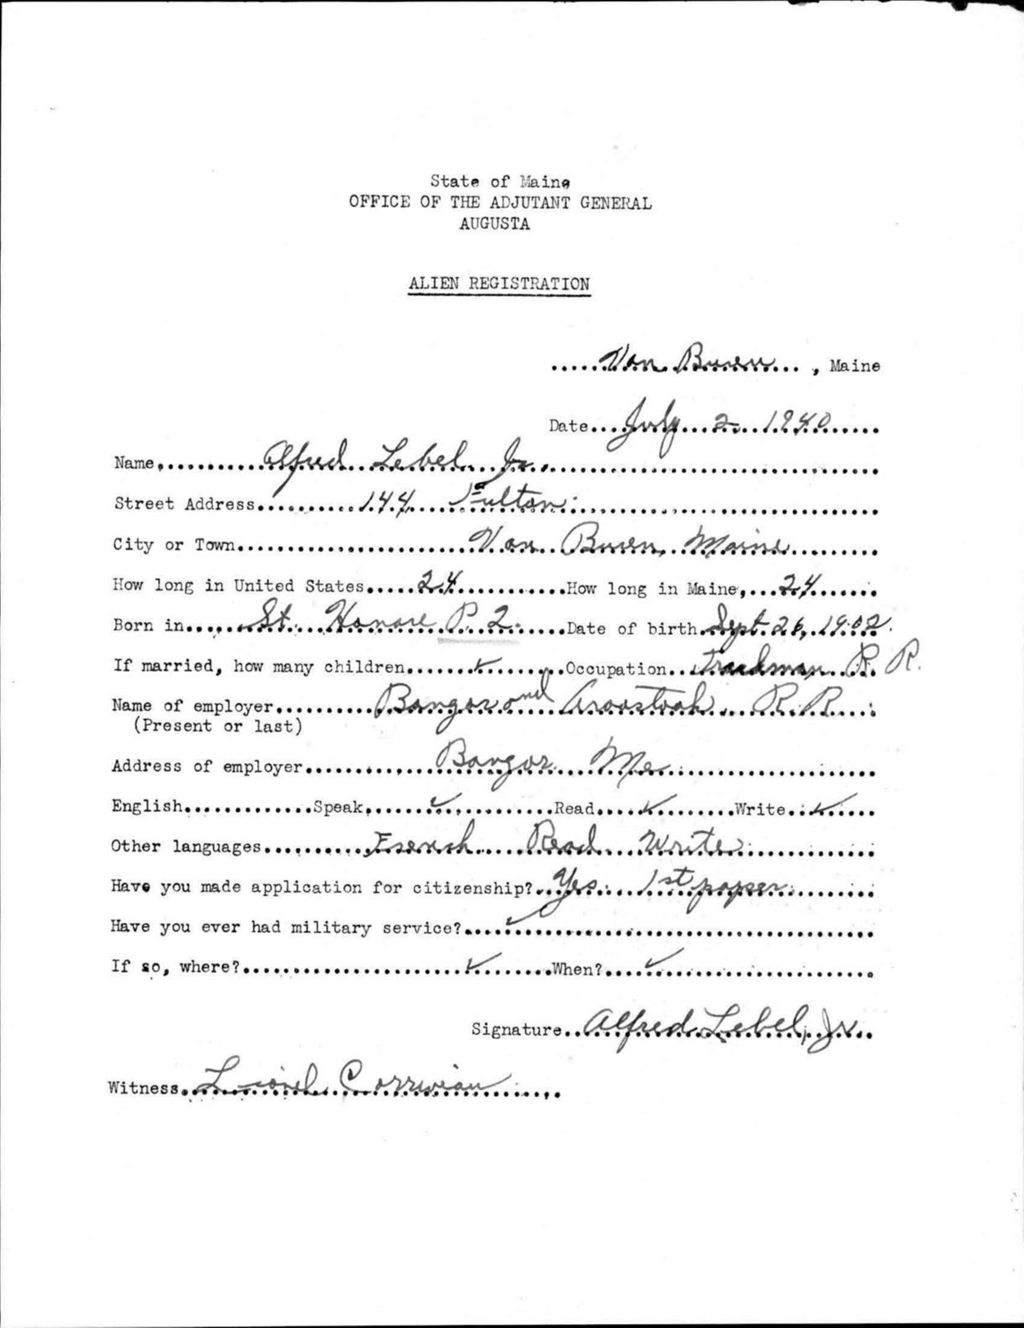 State of Maine
OFFICE OF THE ADJUTANT GENERAL
AUGUSTA
ALIEN REGISTRATION
Van Buren, Maine
Date July 2, 1940
Name Alfred Lebel Jr.
Street Address 144 Fulton
City or Town Van Buren, Maine
How long in United States 24 How long in Maine 24
Born in St. Honore P. Q. Date of birth Sept. 26, 1902.
If married, how many children ✓ Occupation Trackman R. R.
Name of employer Bangor and Aroostook R. R.
(Present or last)
Address of employer Bangor Me.
English Speak ✓ Read ✓ Write ✓
Other languages French Read Write
Have you made application for citizenship? Yes 1st paper
Have you ever had military service? ✓
If so, where? ✓ When? ✓
Signature Alfred Lebel, Jr.
Witness Lionel